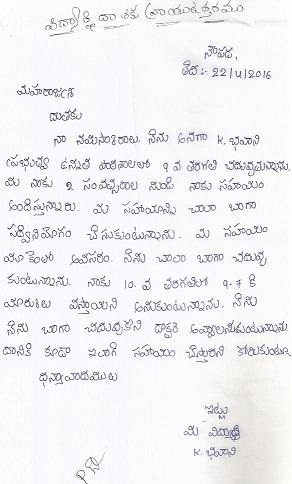 విద్యార్థి దాతకు వ్రాయు ఉత్తరము
నౌపడ,
తేది:- 22/4/2016
మహారాజశ్రీ
దాతకు
నా నమస్కారాలు. నేను అనగా K. భవాని
ప్రభుత్వ ఉన్నత పాఠశాలలో 9 వ తరగతి చదువుతున్నాను.
మీ నాకు 2 సంవత్సరాల నుండి నాకు సహాయం
అందిస్తున్నారు. మీ సహాయాన్ని చాలా బాగా
సద్వినియోగం చేసుకుంటున్నాను. మీ సహాయం
మాకెంతో అవసరం. నేను చాలా బాగా చదువు
కుంటున్నాను. నాకు 10.వ తరగతిలో 9.7 కి
మారుకులు వస్తాయని అనుకుంటున్నాను. నేను
నేను బాగా చదువుకొని డాక్టర్ అవ్వాలనుకుంటున్నాను.
దానికి కూడా ఇలాగే సహాయం చేస్తారని కోరుకుంటూ
ధన్యావాదములు
ఇట్లు
మీ విద్యార్థి
K. భవాని